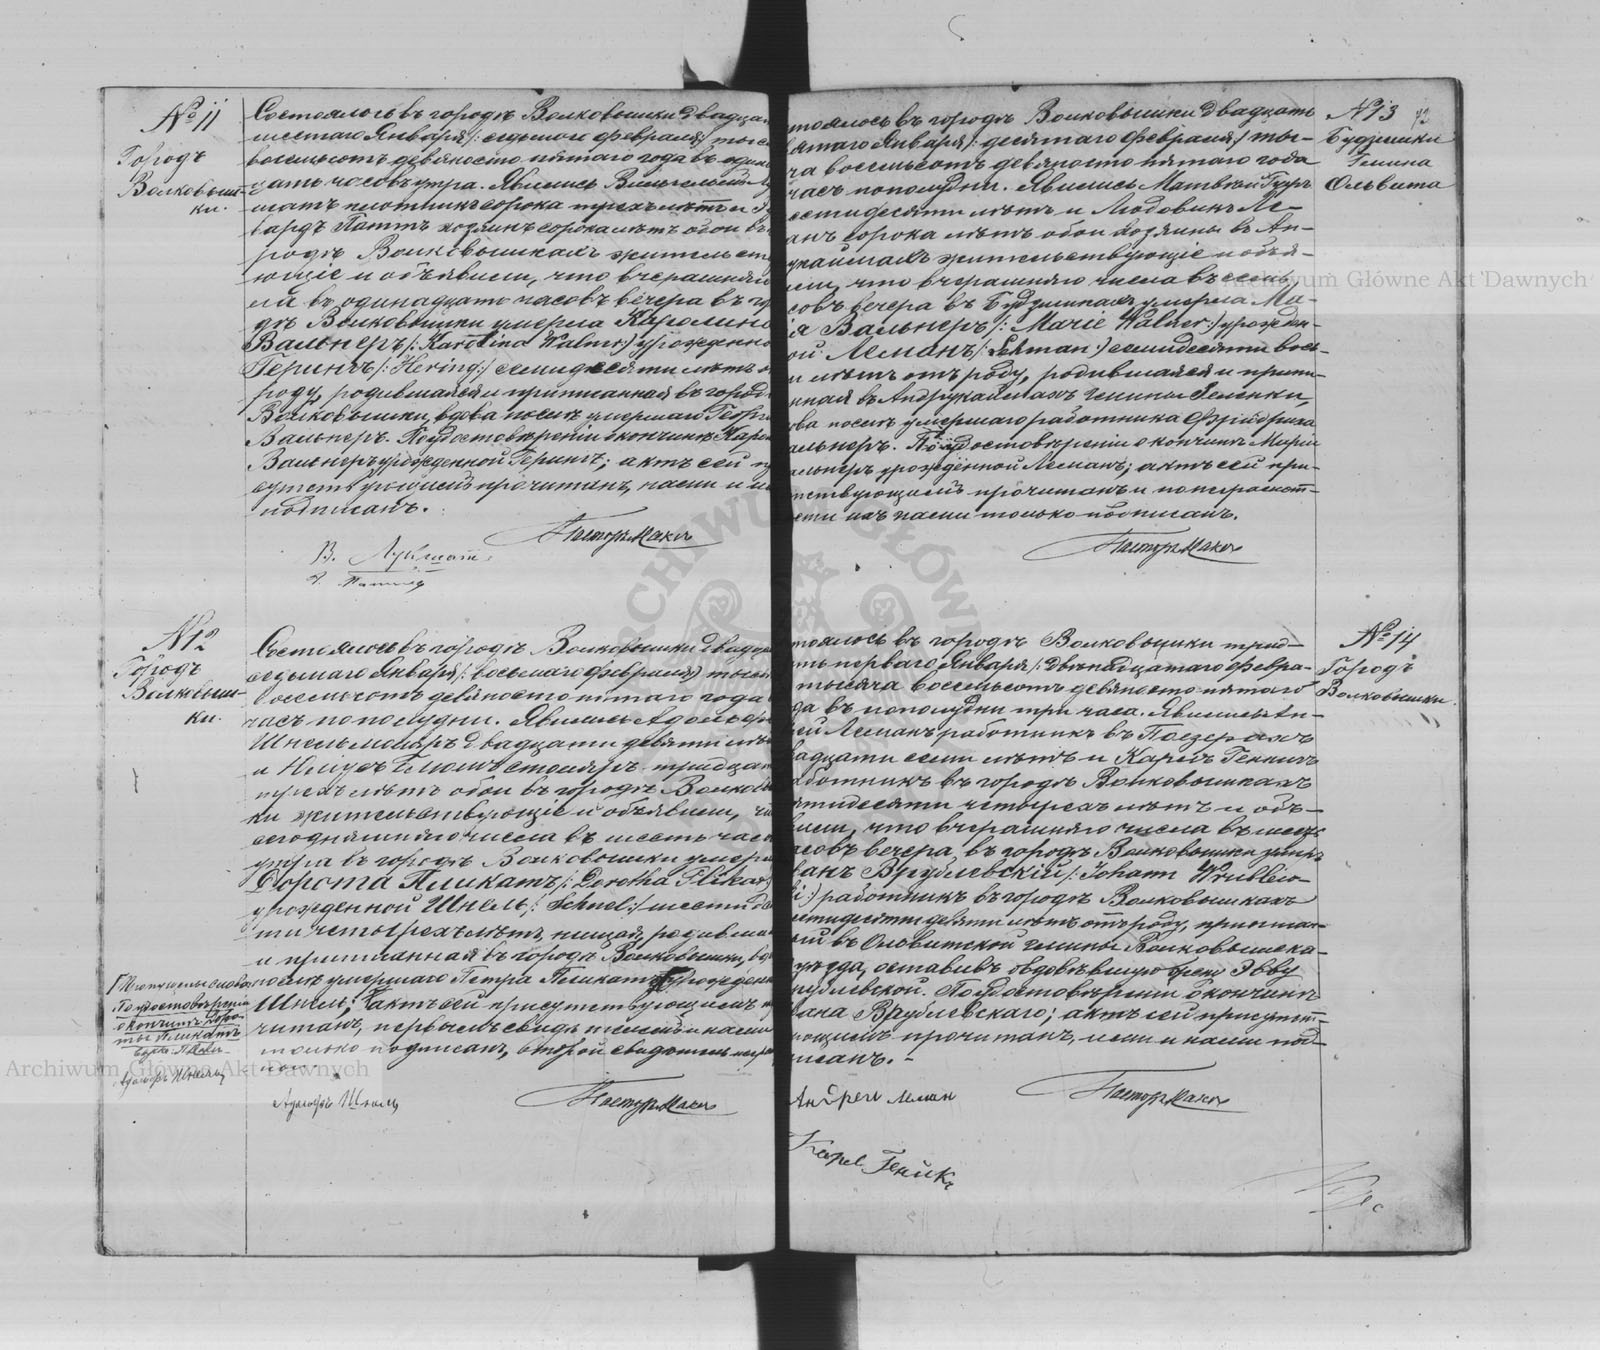 № 11
Городъ
Волковыш-
ки.
Состоялось въ городѣ Волковышки двадца
шестаго Января /: седьмаго февраля :/ тыся
восемьсотъ девяносто пятаго года въ один
цать часовъ утра. Явились Вильгельмъ
плотникъ сорока трехъ лѣтъ и
вардъ хозяинъ сорока лѣтъ обои въ
родѣ Волковышкахъ жительств
ющіе и объявили, что вчерашняго
ла въ одинадцать часовъ вечера въ го
дѣ Волковышки умерла Каролина
Вальнеръ /: Karolina Walner :/ урожденно
Герингъ /: Hering :/ семидесяти лѣтъ о
роду, родившаяся и приписанная въ город
Волковышки, вдова послѣ умершаго Георг
Вальнеръ. По удостовѣреніи о кончинѣ Каро
Вальнеръ урожденной Герингъ; актъ сей п
сутствующимъ прочитанъ, нами и и
подписанъ.
Пасторъ
В.
№ 12
Городъ
Волковыш-
ки.
Состоялось въ городѣ Волковышки двадца
седьмаго Января /: восьмаго февраля :/ тыся
восемьсотъ девяносто пятаго года
часъ пополудни. Явились Адольфъ
Шнель маляръ двадцати девяти лѣ
и Юліусъ столяръ тридцат
трехъ лѣтъ обои въ городѣ Волков
ки жительствующіе и объявили, ч
сегодняшняго числа въ шесть час
утра въ городѣ Волковышки умер
Дорота Пликатъ /: Dorotha Plikat
урожденной Шнель /: Schnel :/ шестиде
ти четырехъ лѣтъ, нищая, родивша
и приписанная въ городѣ Волковышки, вд
послѣ умершаго Петра Пликатъ урожден
Шнель; актъ сей присутствующимъ
читанъ, первымъ свидѣтелемъ и нами
только подписанъ, второй свидѣтель негра
Пропущены слова
По удостовѣреніи
о кончинѣ Доро-
ты Пликатъ
Адольфъ Шнель
Адольфъ Шнель
Пасторъ
№ 13
42
Будзишки
Гмина
Ольвита
тоялось въ городѣ Волковышки двадцать
вятаго Января /: десятаго февраля :/ ты-
ча восемьсотъ девяносто пятаго года
часъ пополудни. Явились Матвѣй
естидесяти лѣтъ и Людовикъ Ле-
анъ сорока лѣтъ обои хозяины въ Ан-
рукаймахъ жительствующіе и объя-
или, что вчерашняго числа въ семь
совъ вечера въ Будзишкахъ умерла Ма-
ія Вальнеръ /: Marie Walner :/ урожден-
ой Леманъ /: Lehman :/ семидесяти вось-
и лѣтъ отъ роду, родившаяся и припи-
нная въ Андрукаймахъ гмины Зеленки,
ова послѣ умершаго работника Фридриха
альнеръ. По удостовѣреніи о кончинѣ Маріи
альнеръ урожденной Леманъ; актъ сей при-
тствующимъ прочитанъ и по неграмот-
сти ихъ нами только подписанъ.
Пасторъ
№ 14
Городъ
Волковышки.
тоялось въ городѣ Волковышки трид-
ть перваго Января /: двѣнадцатаго февра-
тысяча восемьсотъ девяносто пятаго
да въ пополудни три часа. Явились Ан-
ей Леманъ работникъ въ Поезерахъ
вадцати семи лѣтъ и Карлъ
аботникъ въ городѣ Волковышкахъ
ятидесяти четырехъ лѣтъ и объ-
вили, что вчерашняго числа въ шесть
асовъ вечера въ городѣ Волковышки умеръ
ванъ Врублевскій /: Johann Wrublew-
ki :/ работникъ въ городѣ Волковышкахъ
естидесяти девяти лѣтъ отъ роду, приписан-
ый въ Ольвитской гмины Волковышска-
уѣзда, оставивъ овдовѣвшую жену Эвву
рублевской. По удостовѣреніи о кончинѣ
вана Врублевскаго; актъ сей присутст-
ующимъ прочитанъ, ими и нами под-
писанъ.
Андрей Леман
Пасторъ
Карл
Archiwum Główne Akt Dawnych
Archiwum Główne Akt Dawnych